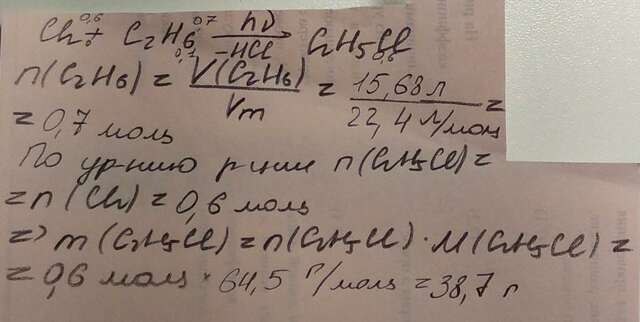 Cl₂ 0,6 + C₂H₆ 0,7 0,1 hν/−HCl → C₂H₅Cl 0,6
n(C₂H₆) = V(C₂H₆)/Vm = 15,68 л/22,4 л/моль =
= 0,7 моль
По ур-нию р-ции n(C₂H₅Cl) =
= n(Cl₂) = 0,6 моль
=> m(C₂H₅Cl) = n(C₂H₅Cl) · M(C₂H₅Cl) =
= 0,6 моль · 64,5 г/моль = 38,7 г